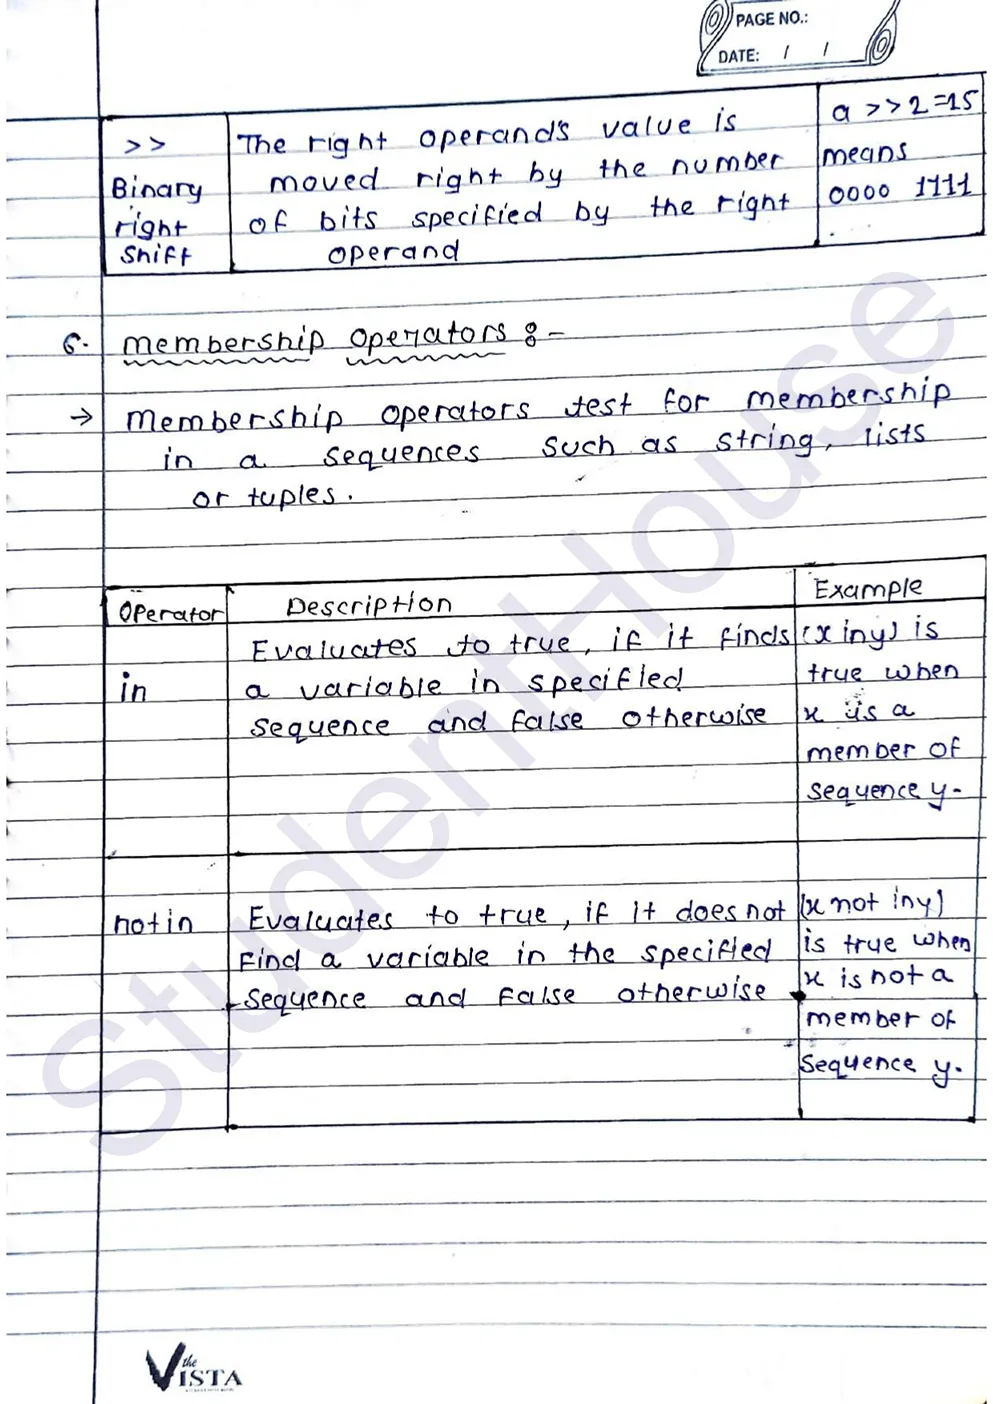 PAGE NO.:
DATE: / /
>> Binary right shift
The right operand's value is
moved right by the number
of bits specified by the right
operand
a >> 2 = 15
means
0000 1111
6. Membership Operators :-
→ Membership operators test for membership
in a sequences such as string, lists
or tuples.
Operator
Description
Example
in
Evaluates to true, if it finds
a variable in specified
sequence and false otherwise
(x in y) is
true when
x is a
member of
sequence y.
not in
Evaluates to true, if it does not
find a variable in the specified
sequence and false otherwise
(x not in y)
is true when
x is not a
member of
sequence y.
StudentHouse
the
VISTA